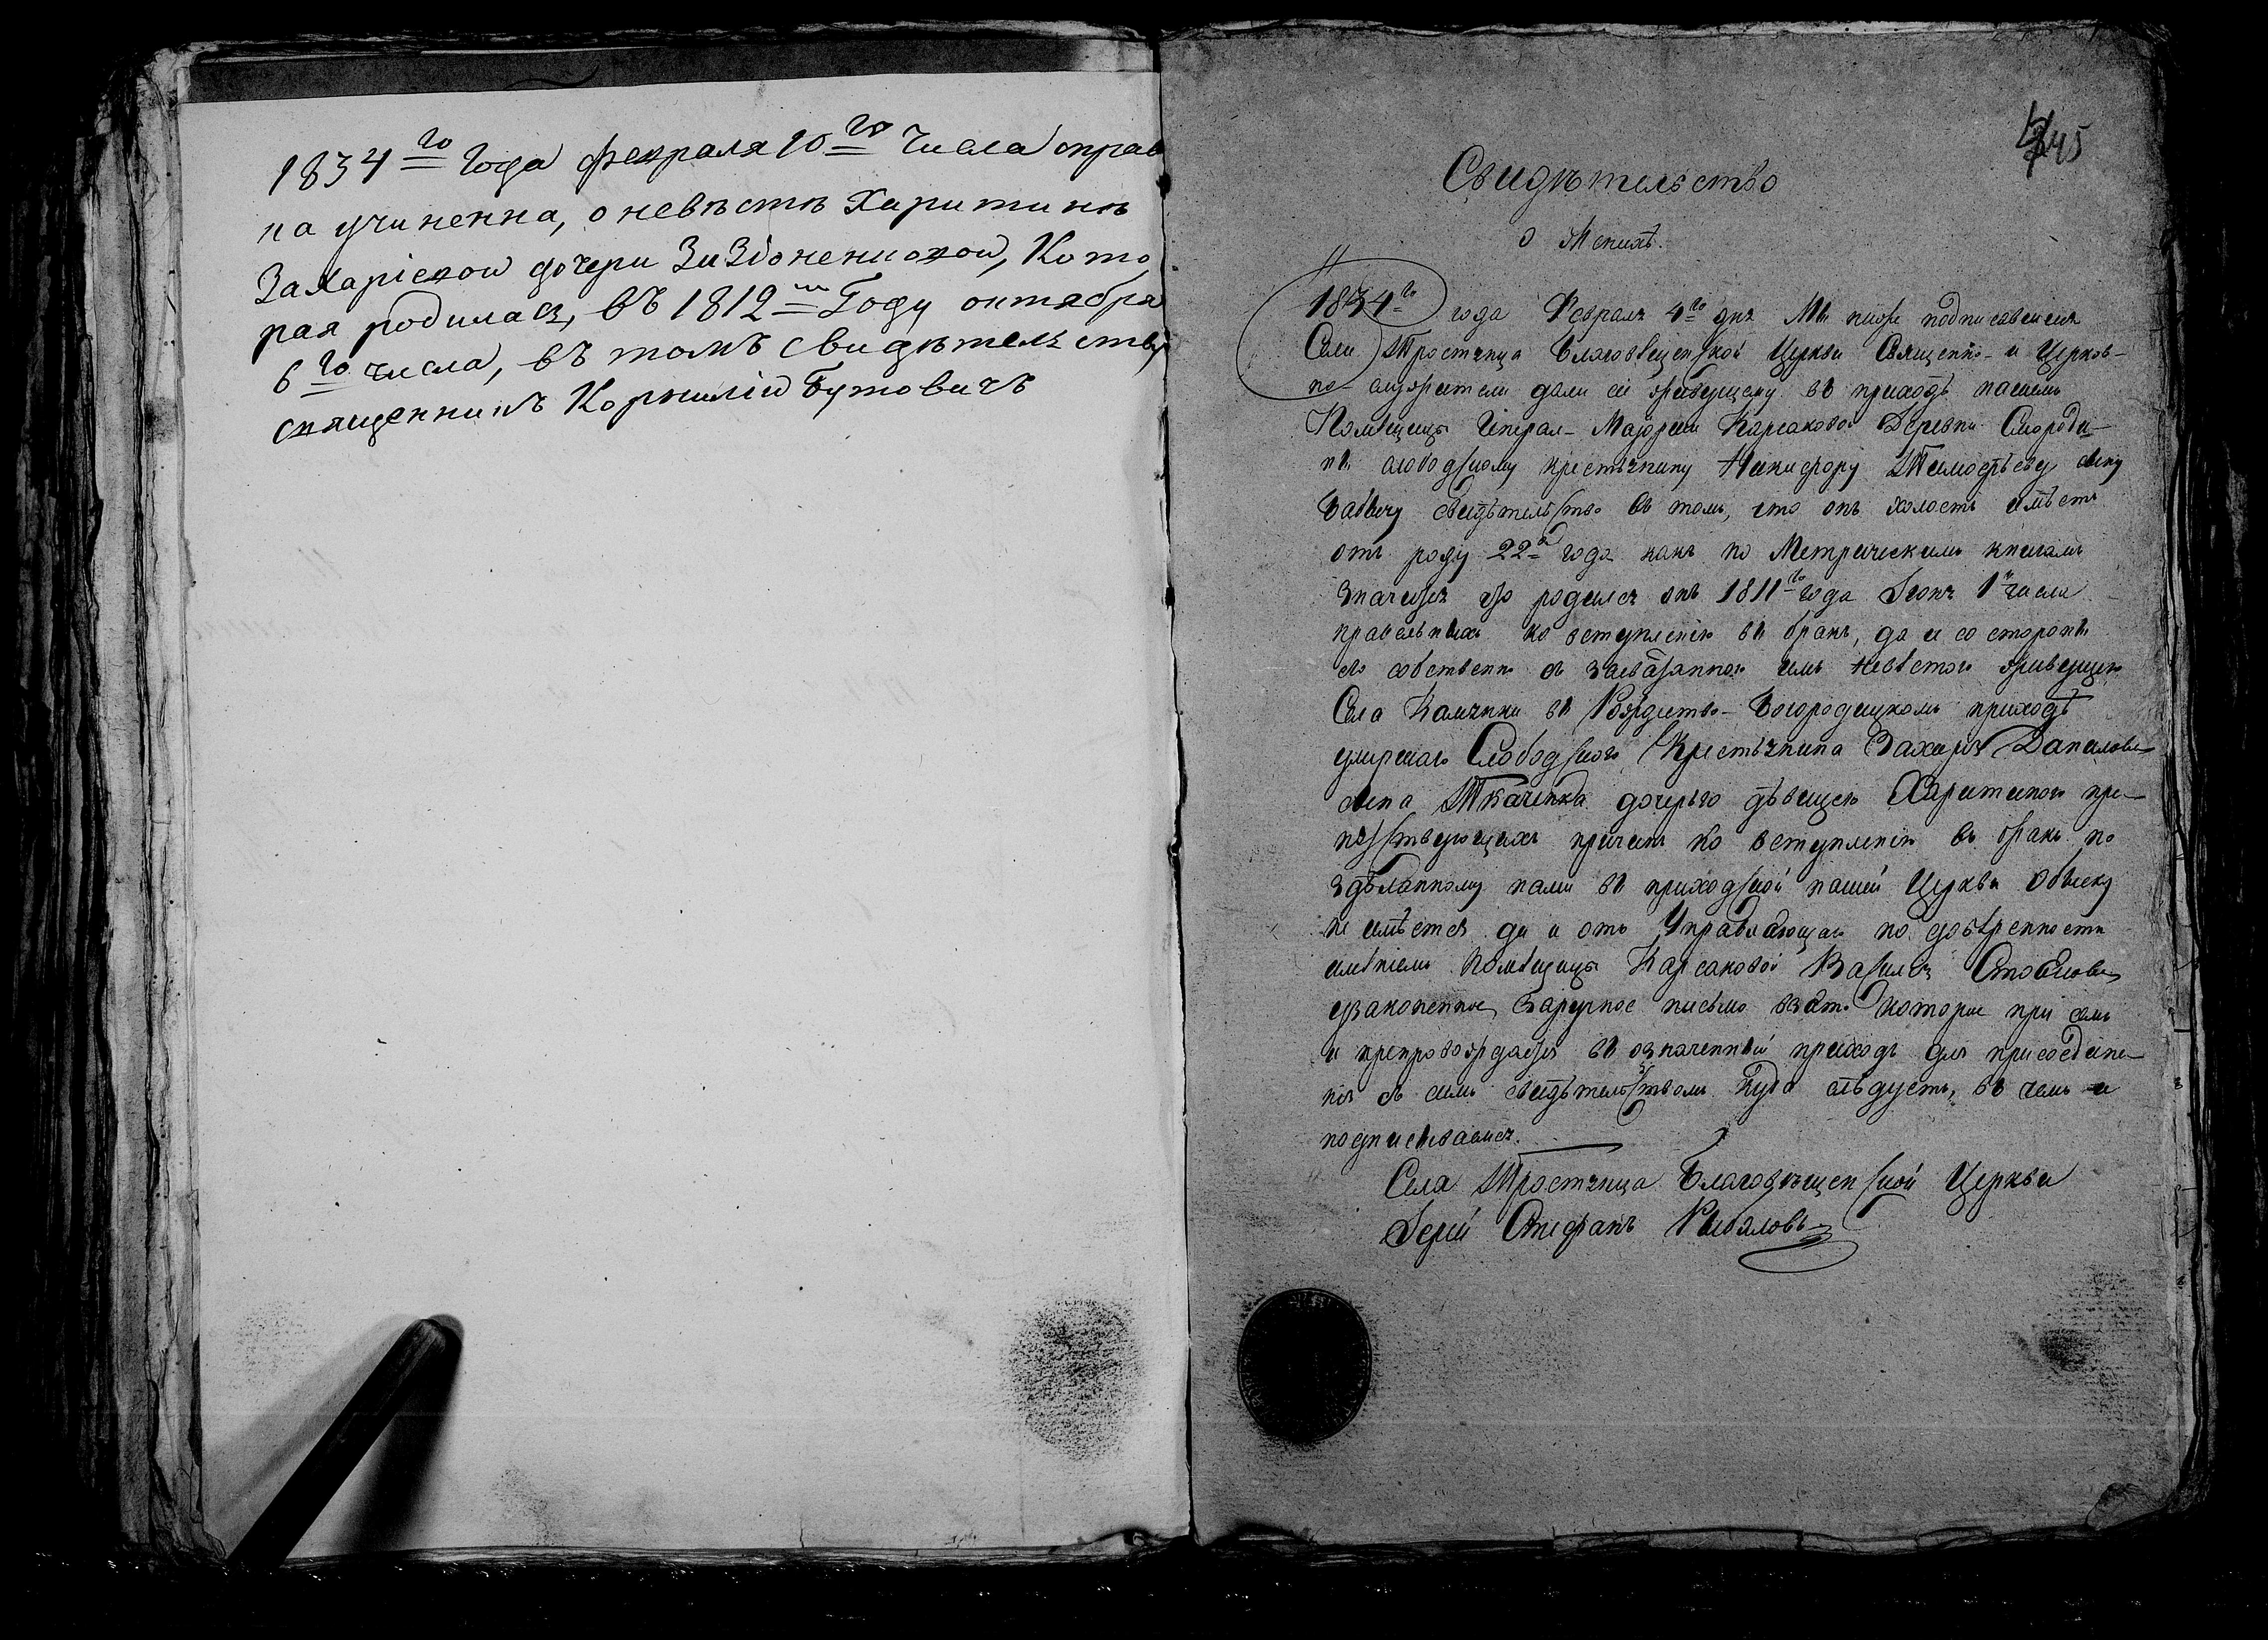 1834го года февраля 10го числа справ
ка учиненна, о невѣстѣ Харитинѣ
Захаріевой дочери, Кото
рая родилась, въ 1812м Году октября
6го числа, въ томъ свидѣтельствую
священникъ Корнилій Бутовичъ
45
Свидѣтельство
о Женихѣ.
1834го года Февраля 4го дня Мы ниже подписавшіеся
Села Тростянца Благовѣщенской Церкви Священно- и Церков-
но- служители дали сіе жительствующему въ приходѣ нашемъ
Помѣщицы Генерал- Маіорши Корсаковой Деревни Смороди-
ни слободскому крестьянину Никифору Тимофѣеву сыну
свидѣтельство въ томъ, что онъ холостъ имѣетъ
отъ роду 22 года какъ по Метрическимъ книгамъ
значится что родился онъ 1811го года Іюня 1 числа
правильныхъ ко вступленію въ бракъ, да и со стороны
его собственно съ засватанною имъ невѣстою жительствующею
Села Камянки въ Рождество- Богородицкомъ приходѣ
умершаго Слободскаго Крестьянина Захарія Данилова
сына Ткаченка дочерью дѣвицею Харитиною пре-
пятствующихъ причинъ ко вступленію въ бракъ по
здѣланному нами въ приходской нашей Церкви Обыску
не имѣется да и отъ Управляющаго по довѣренности
имѣніемъ Помѣщицы Корсаковой Василія
узаконенное заручное письмо взято которое при семъ
и препровождается въ означенный приходъ для присоедине-
нія съ симъ свидѣтельствомъ куда слѣдуетъ, въ чемъ и
подписываемся.
Села Тростянца Благовѣщенской Церкви
Іерей Стефанъ